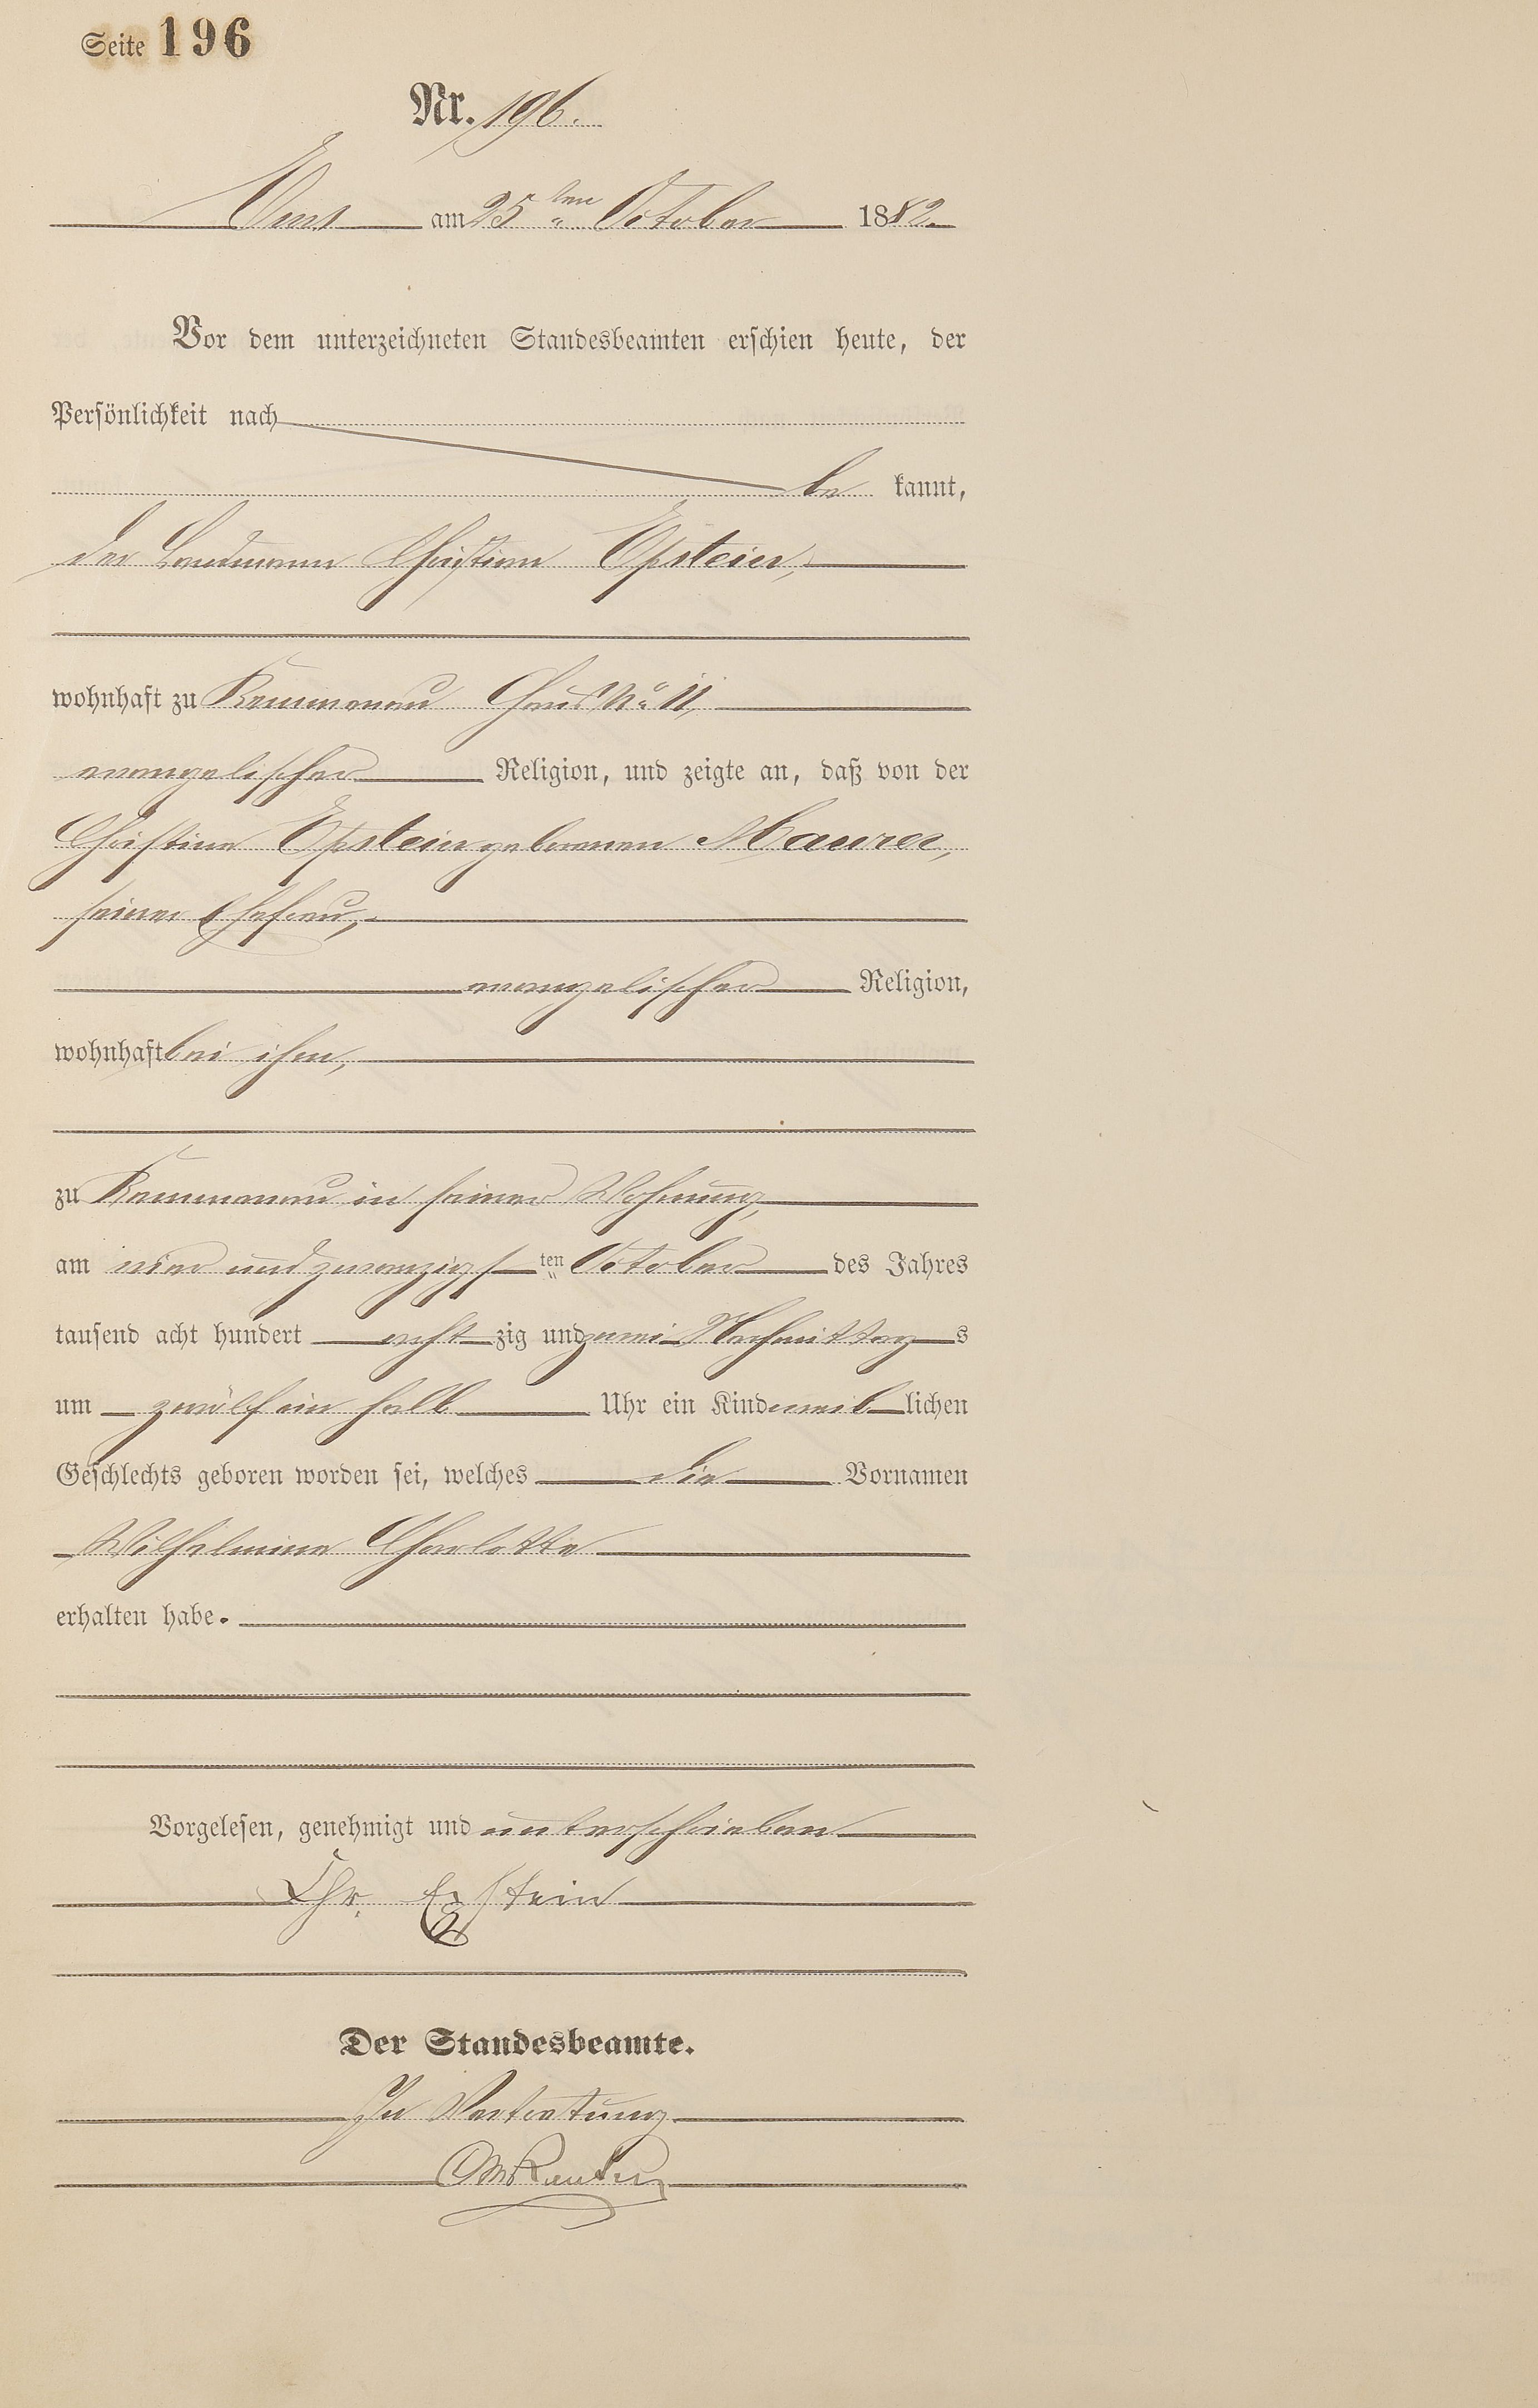 Seite 196
Nr. 196.
Ems am 25ten October 1882.
Vor dem unterzeichneten Standesbeamten erschien heute, der
Persönlichkeit nach
be kannt,
der Landmann Christian Epstein,
wohnhaft zu Kemmenau Haus No 11,
evangelischer Religion, und zeigte an, daß von der
Christine Epstein geborenen Maurer,
seiner Ehefrau,
evangelischer Religion,
wohnhaft bei ihm,
zu Kemmenau in seiner Wohnung,
am vier und zwanzigsten October des Jahres
tausend acht hundert acht zig und zwei Nachmittags
um zwölf ein halb Uhr ein Kind weiblichen
Geschlechts geboren worden sei, welches die Vornamen
Wilhelmine Charlotte
erhalten habe.
Vorgelesen, genehmigt und unterschrieben
Chr. Epstein
Der Standesbeamte.
In Vertretung